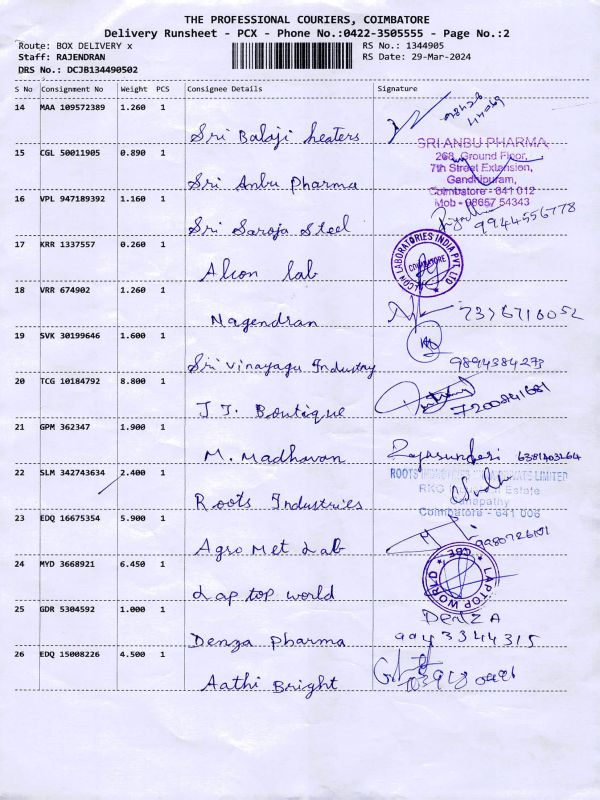 THE PROFESSIONAL COURIERS, COIMBATORE
Delivery Runsheet - PCX - Phone No.:0422-3505555 - Page No.:2
Route: BOX DELIVERY x
RS No.: 1344905
Staff: RAJENDRAN
RS Date: 29-Mar-2024
DRS No.: DCJB134490502
S No Consignment No Weight PCS Consignee Details Signature
14 MAA 109572389 1.260 1
Sri Balaji heaters
15 CGL 50011905 0.890 1
SRI ANBU PHARMA
268, Ground Floor,
7th Street Extension,
Gandhipuram,
Coimbatore - 641 012
Mob - 98657 54343
Sri Anbu Pharma
16 VPL 947189392 1.160 1
Sri Saroja Steel
9944556778
17 KRR 1337557 0.260 1
ALCON LABORATORIES INDIA PVT. LTD
COIMBATORE
Alcon lab
18 VRR 674902 1.260 1
Nagendran
7376716052
19 SVK 30199646 1.600 1
Sri Vinayagu Industry
9894384273
20 TCG 10184792 8.800 1
J.J. Boutique
21 GPM 362347 1.900 1
M. Madhavan
Rajasundari 6381403264
22 SLM 342743634 2.400 1
ROOTS INDUSTRIES INDIA PRIVATE LIMITED
RKG Estate
Ganapathy
Coimbatore - 641 006
Roots Industries
23 EDQ 16675354 5.900 1
Agro Met Lab
24 MYD 3668921 6.450 1
LAPTOP WORLD
CBE
Lap top world
25 GDR 5304592 1.000 1
DENZA
Denza Pharma
9943344315
26 EDQ 15008226 4.500 1
Aathi Bright